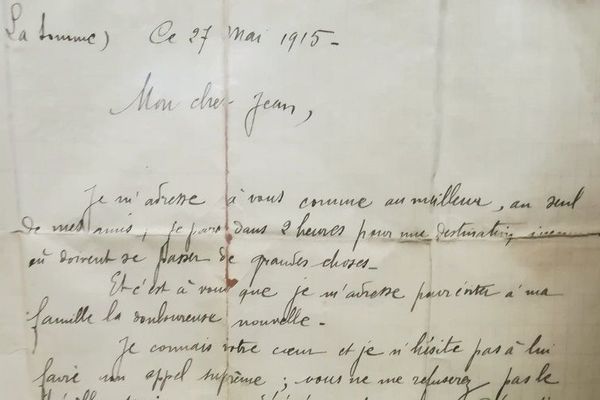 La Somme) Ce 27 Mai 1915 -
Mon cher Jean,
Je m'adresse à vous comme au meilleur, au seul
de mes amis, je pars dans 2 heures pour une destination
où doivent se passer de grandes choses -
Et c'est à vous que je m'adresse pour éviter à ma
famille la douloureuse nouvelle -
Je connais votre cœur et je n'hésite pas à lui
faire un appel suprême ; vous ne me refuserez pas le